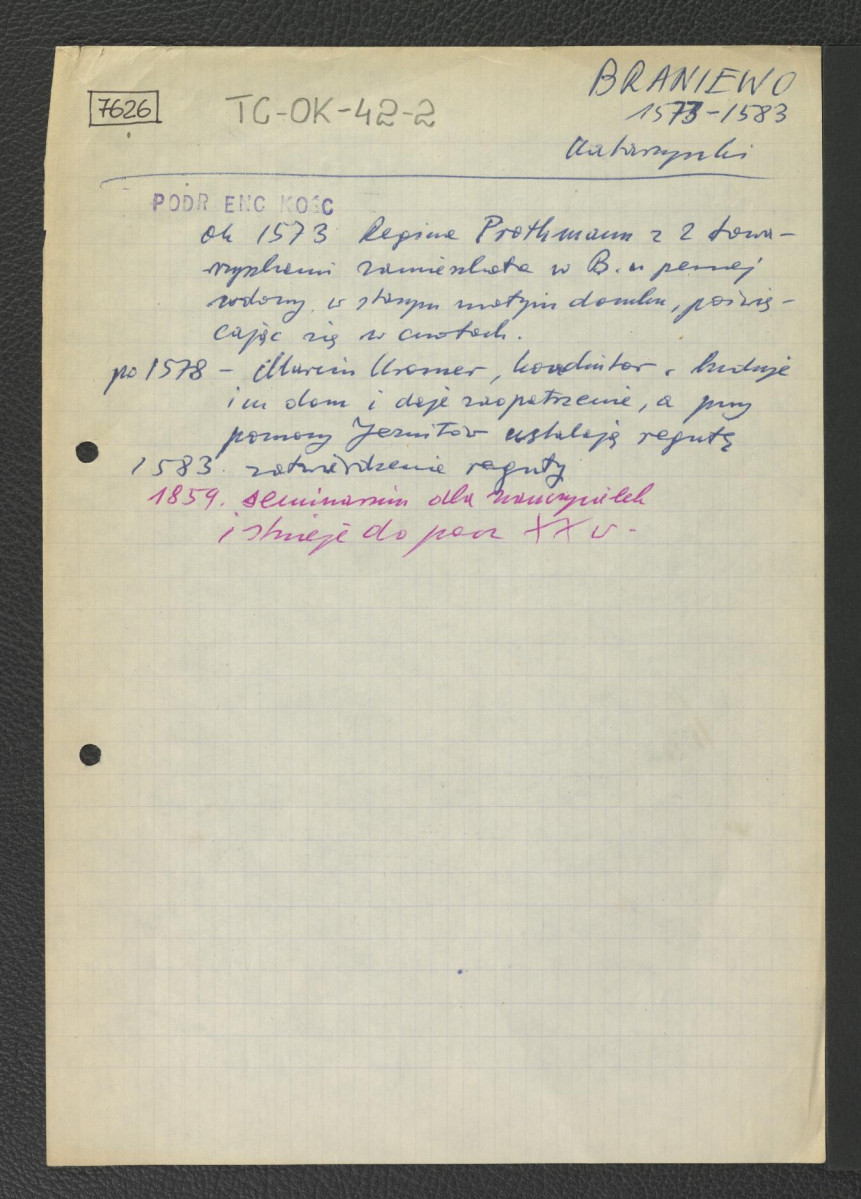 BRANIEWO
7626 TC-OK-42-2 1573-1583
Katarzynki
PODR ENC KOŚC
ok 1573 Regina Prothmann z 2 towa-
rzyszkami zamieszkała w B. u pewnej
wdowy w starym małym domku, poświę-
cając się w cnotach.
po 1578 - Marcin Kromer, koadiutor, buduje
im dom i daje zaopatrzenie, a przy
pomocy Jezuitów ustalają regułę
1583. zatwierdzenie reguły
1859. seminarium dla nauczycielek
istnieje do pocz XX w.